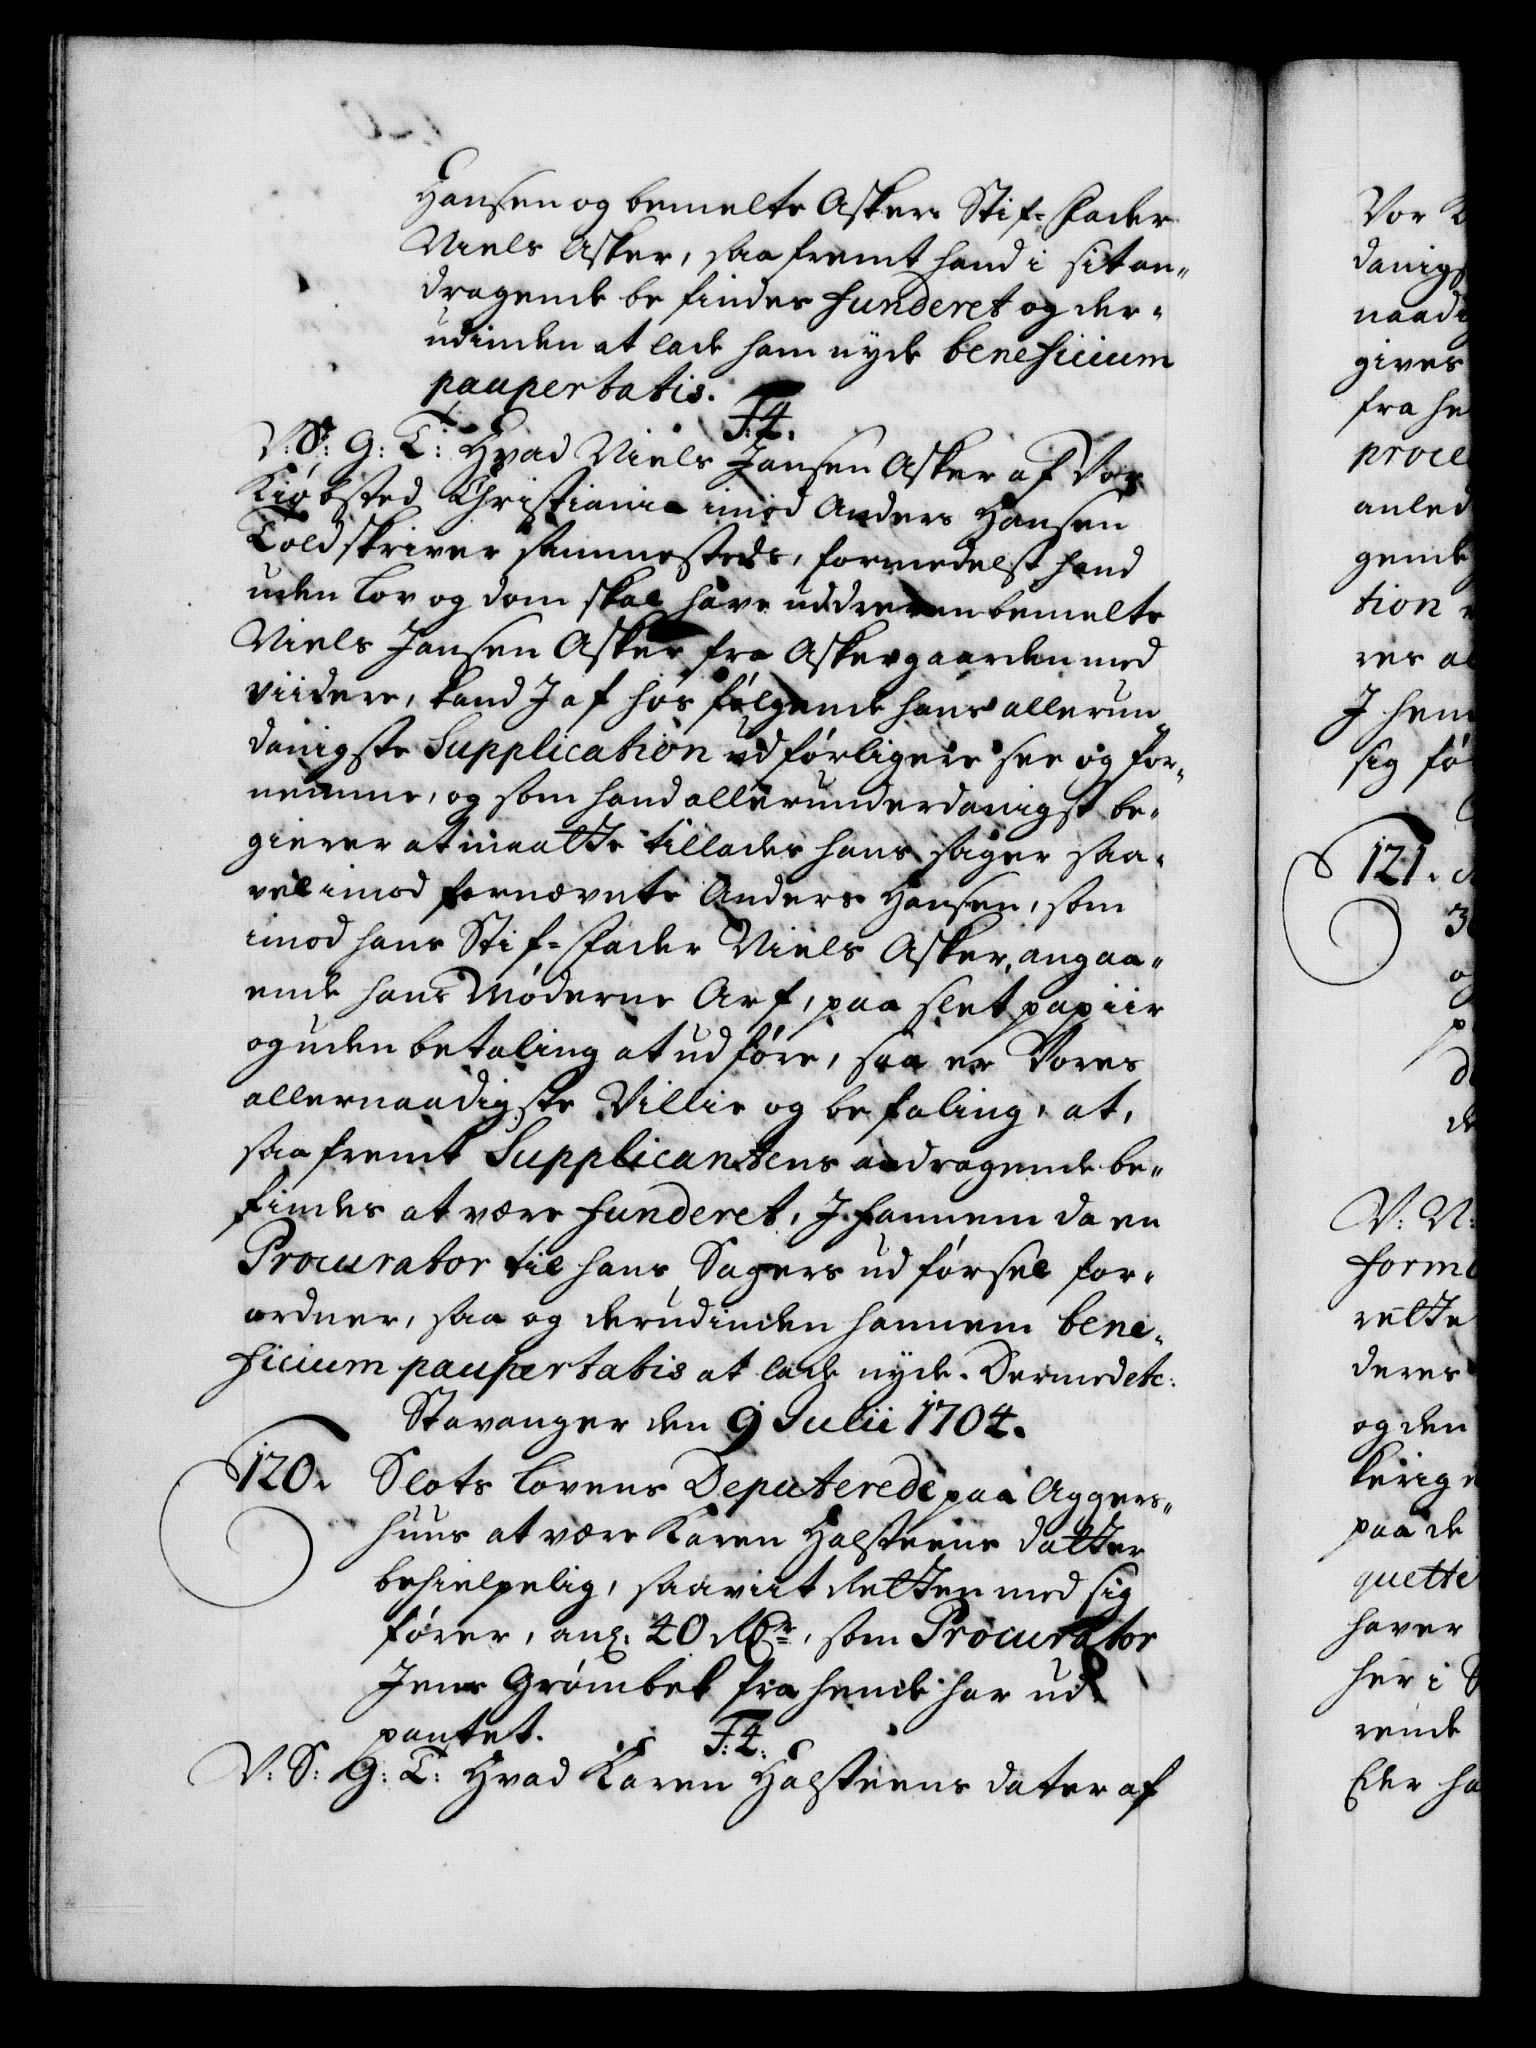 Hansen og bemelte Askers Stif-Fader
Niels Asker, saafremt hand i sit an-
dragende befindes funderet og der-
udinden at lade ham nyde beneficium
paupertatis.
F: 4.
V: S: G: T: Hvad Niels Jansen Asker af Vor
Kiøbsted Christiania imod Anders Hansen
Toldskriver sammesteds, formedelst hand
uden Lov og dom skal have uddreven bemelte
Niels Jansen Asker fra Askergaarden med
viidere, kand J af hos følgende hans allerun-
danigste Supplication udførligere see og for-
nemme, og som hand allerunderdanigst be-
gierer at maatte tillades hans sager saa-
vel imod fornævnte Anders Hansen, som
imod hans Stif-Fader Niels Asker, angaa-
ende hans Møderne Arf, paa slet papiir
og uden betaling at udføre, saa er Vores
allernaadigste Villie og befaling, at,
saafremt Supplicantens andragende be-
findes at være funderet, J hannem da en
Procurator til hans Sagers udførsel for-
ordner, saa og derudinden hannem bene-
ficium paupertatis at lade nyde. Dermed etc:
Stavanger den 9 Julii 1704.
120. Slots Lovens Deputerede paa Aggers-
huus at være Karen Halsteens datter
behielpelig, saaviit Retten med sig
fører, ang: 40 Rdr, som Procurator
Jens Grømbek fra hende har ud-
pantet.
F: 4.
V: S: G: T: Hvad Karen Halsteens dater af
Vor
danigs
naadi
gives
fra he
proce
anled
gende
tion
res al
J hen
sig fø
121.
V: N:
form
rette
deres
og den
kerig
paa de
quette
haver
her i
rende
Eder ha